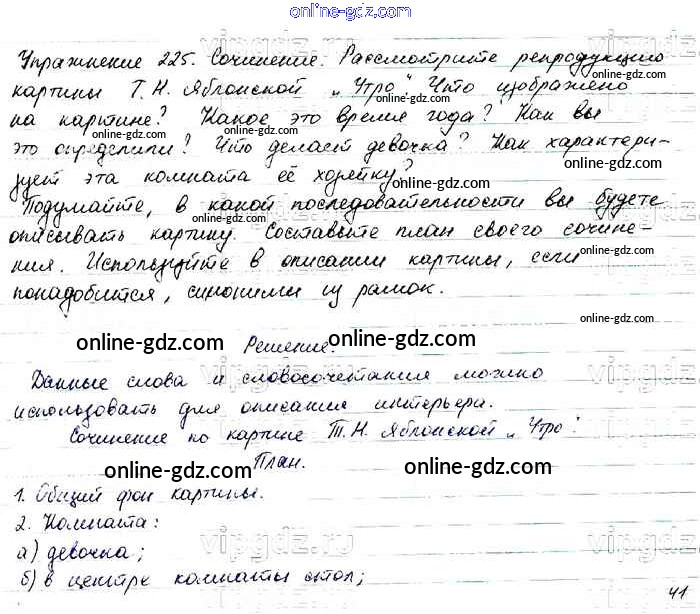 online-gdz.com
Упражнение 225. Сочинение. Рассмотрите репродукцию
online-gdz.com online-gdz.com
картины Т.Н. Яблонской „Утро". Что изображено
online-gdz.com
на картине? Какое это время года? Как вы
online-gdz.com online-gdz.com
это определили? Что делает девочка? Как характери-
online-gdz.com
зует эта комната её хозяйку?
Подумайте, в какой последовательности вы будете
online-gdz.com
описывать картину. Составьте план своего сочине-
ния. Используйте в описании картины, если
online-gdz.com
понадобится, синонимы из рамок.
online-gdz.com
online-gdz.com Решение. online-gdz.com
vipgdz.ru vipgdz
Данные слова и словосочетания можно
использовать для описания интерьера.
Сочинение по картине Т.Н. Яблонской „Утро".
План.
online-gdz.com online-gdz.com
1. Общий фон картины.
2. Комната:
vipgdz.ru vipgdz
а) девочка;
б) в центре комнаты стол;
41